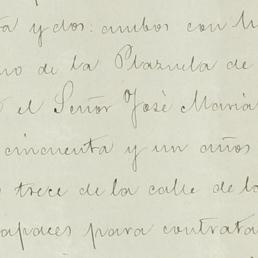 y dos: ambos con
no de la Plazuela de
el Señor José Maria
cincuenta y un años
trece de la calle de la
apaces para contrata